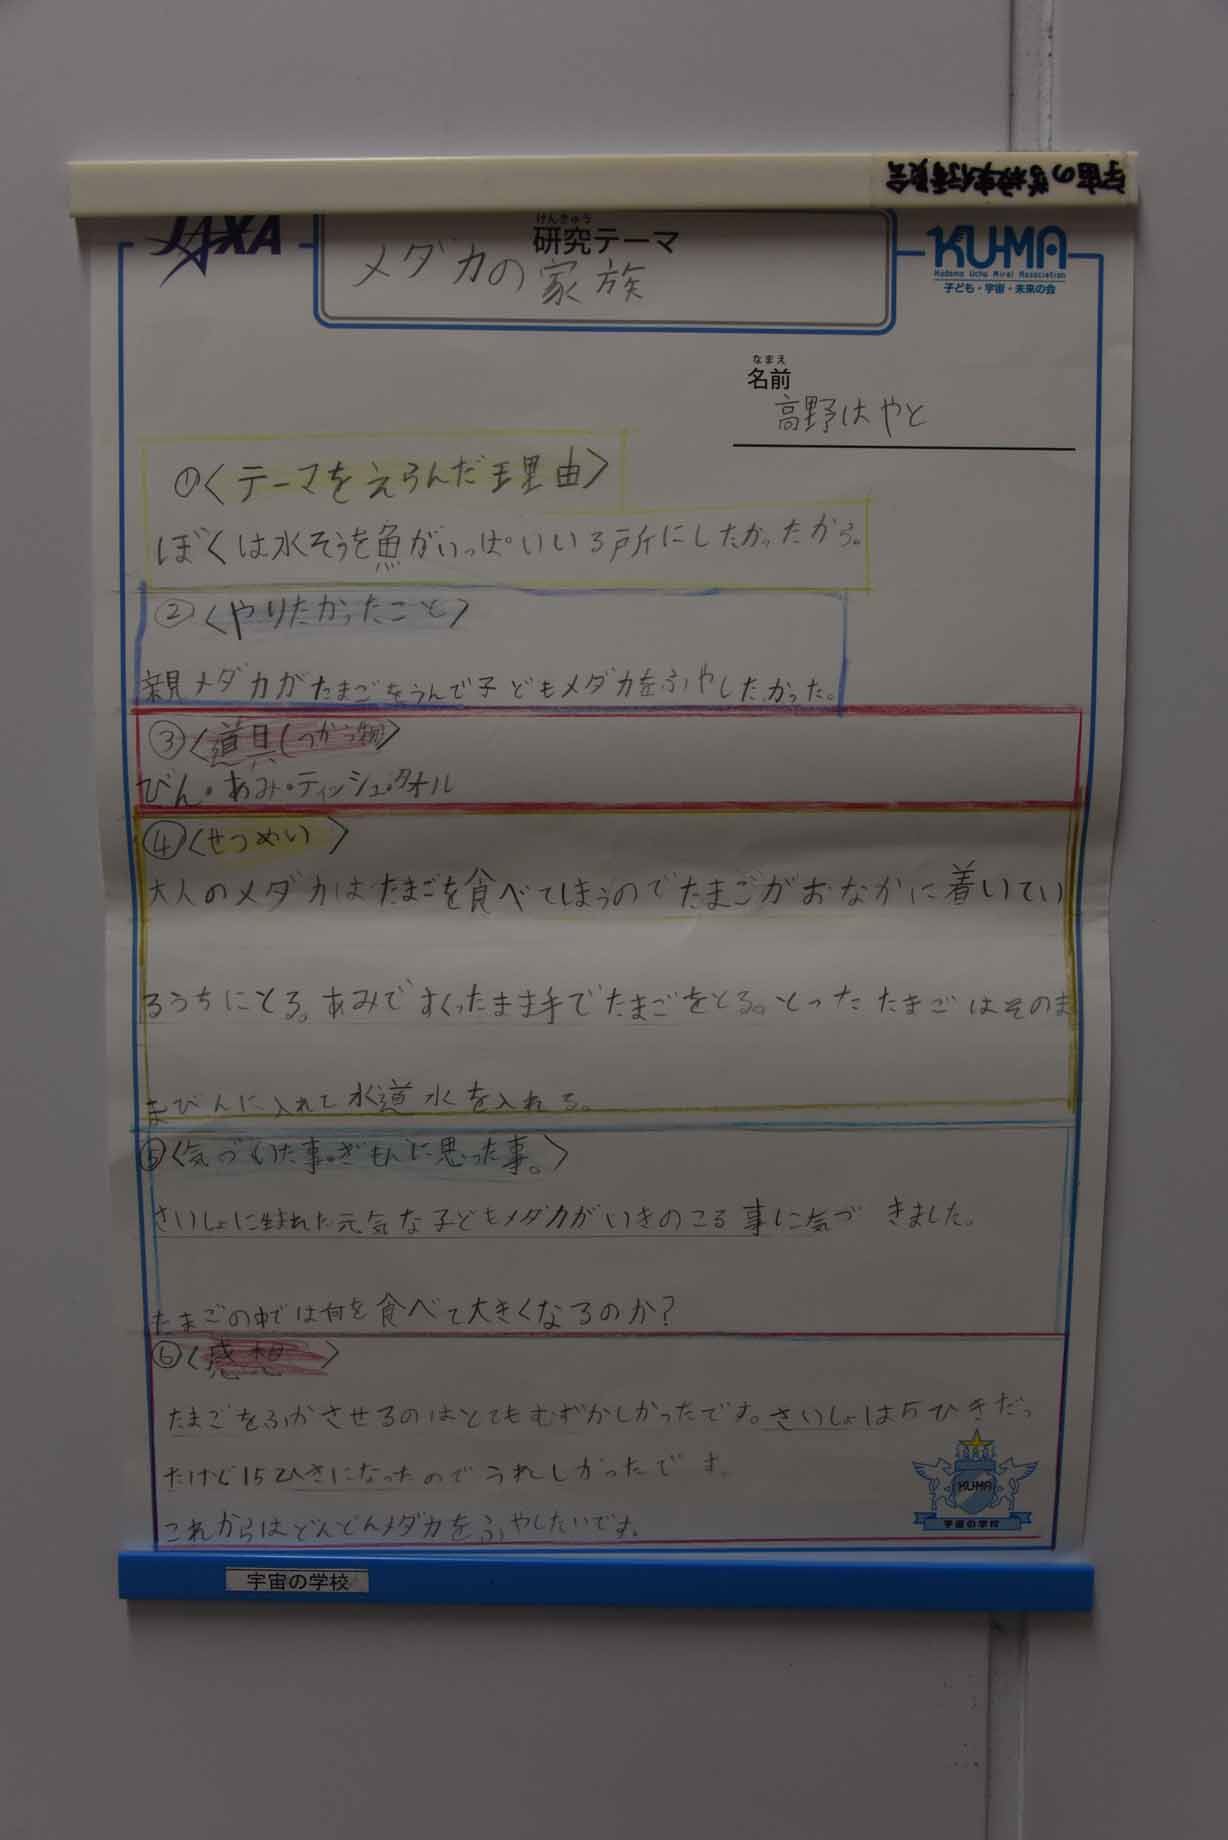 宇宙の学校実行委員会
JAXA
けんきゅう
研究テーマ
メダカの家族
KU-MA
Kodomo Uchu Mirai Association
子ども・宇宙・未来の会
なまえ
名前
高野はやと
①〈テーマをえらんだ理由〉
ぼくは水そうを魚がいっぱいいる所にしたかったから。
②〈やりたかったこと〉
親メダカがたまごをうんで子どもメダカをふやしたかった。
③〈道具(つかう物)〉
びん・あみ・ティッシュ・タオル
④〈せつめい〉
大人のメダカはたまごを食べてしまうのでたまごがおなかに着いてい
るうちにとる。あみですくったまま手でたまごをとる。とったたまごはそのま
まびんに入れて水道水を入れる。
⑤〈気づいた事。ぎもんに思った事。〉
さいしょに生まれた元気な子どもメダカがいきのこる事に気づきました。
たまごの中では何を食べて大きくなるのか?
⑥〈感想〉
たまごをふかさせるのはとてもむずかしかったです。さいしょは5ひきだっ
たけど15ひきになったのでうれしかったです。
これからはどんどんメダカをふやしたいです。
KU-MA
宇宙の学校
宇宙の学校